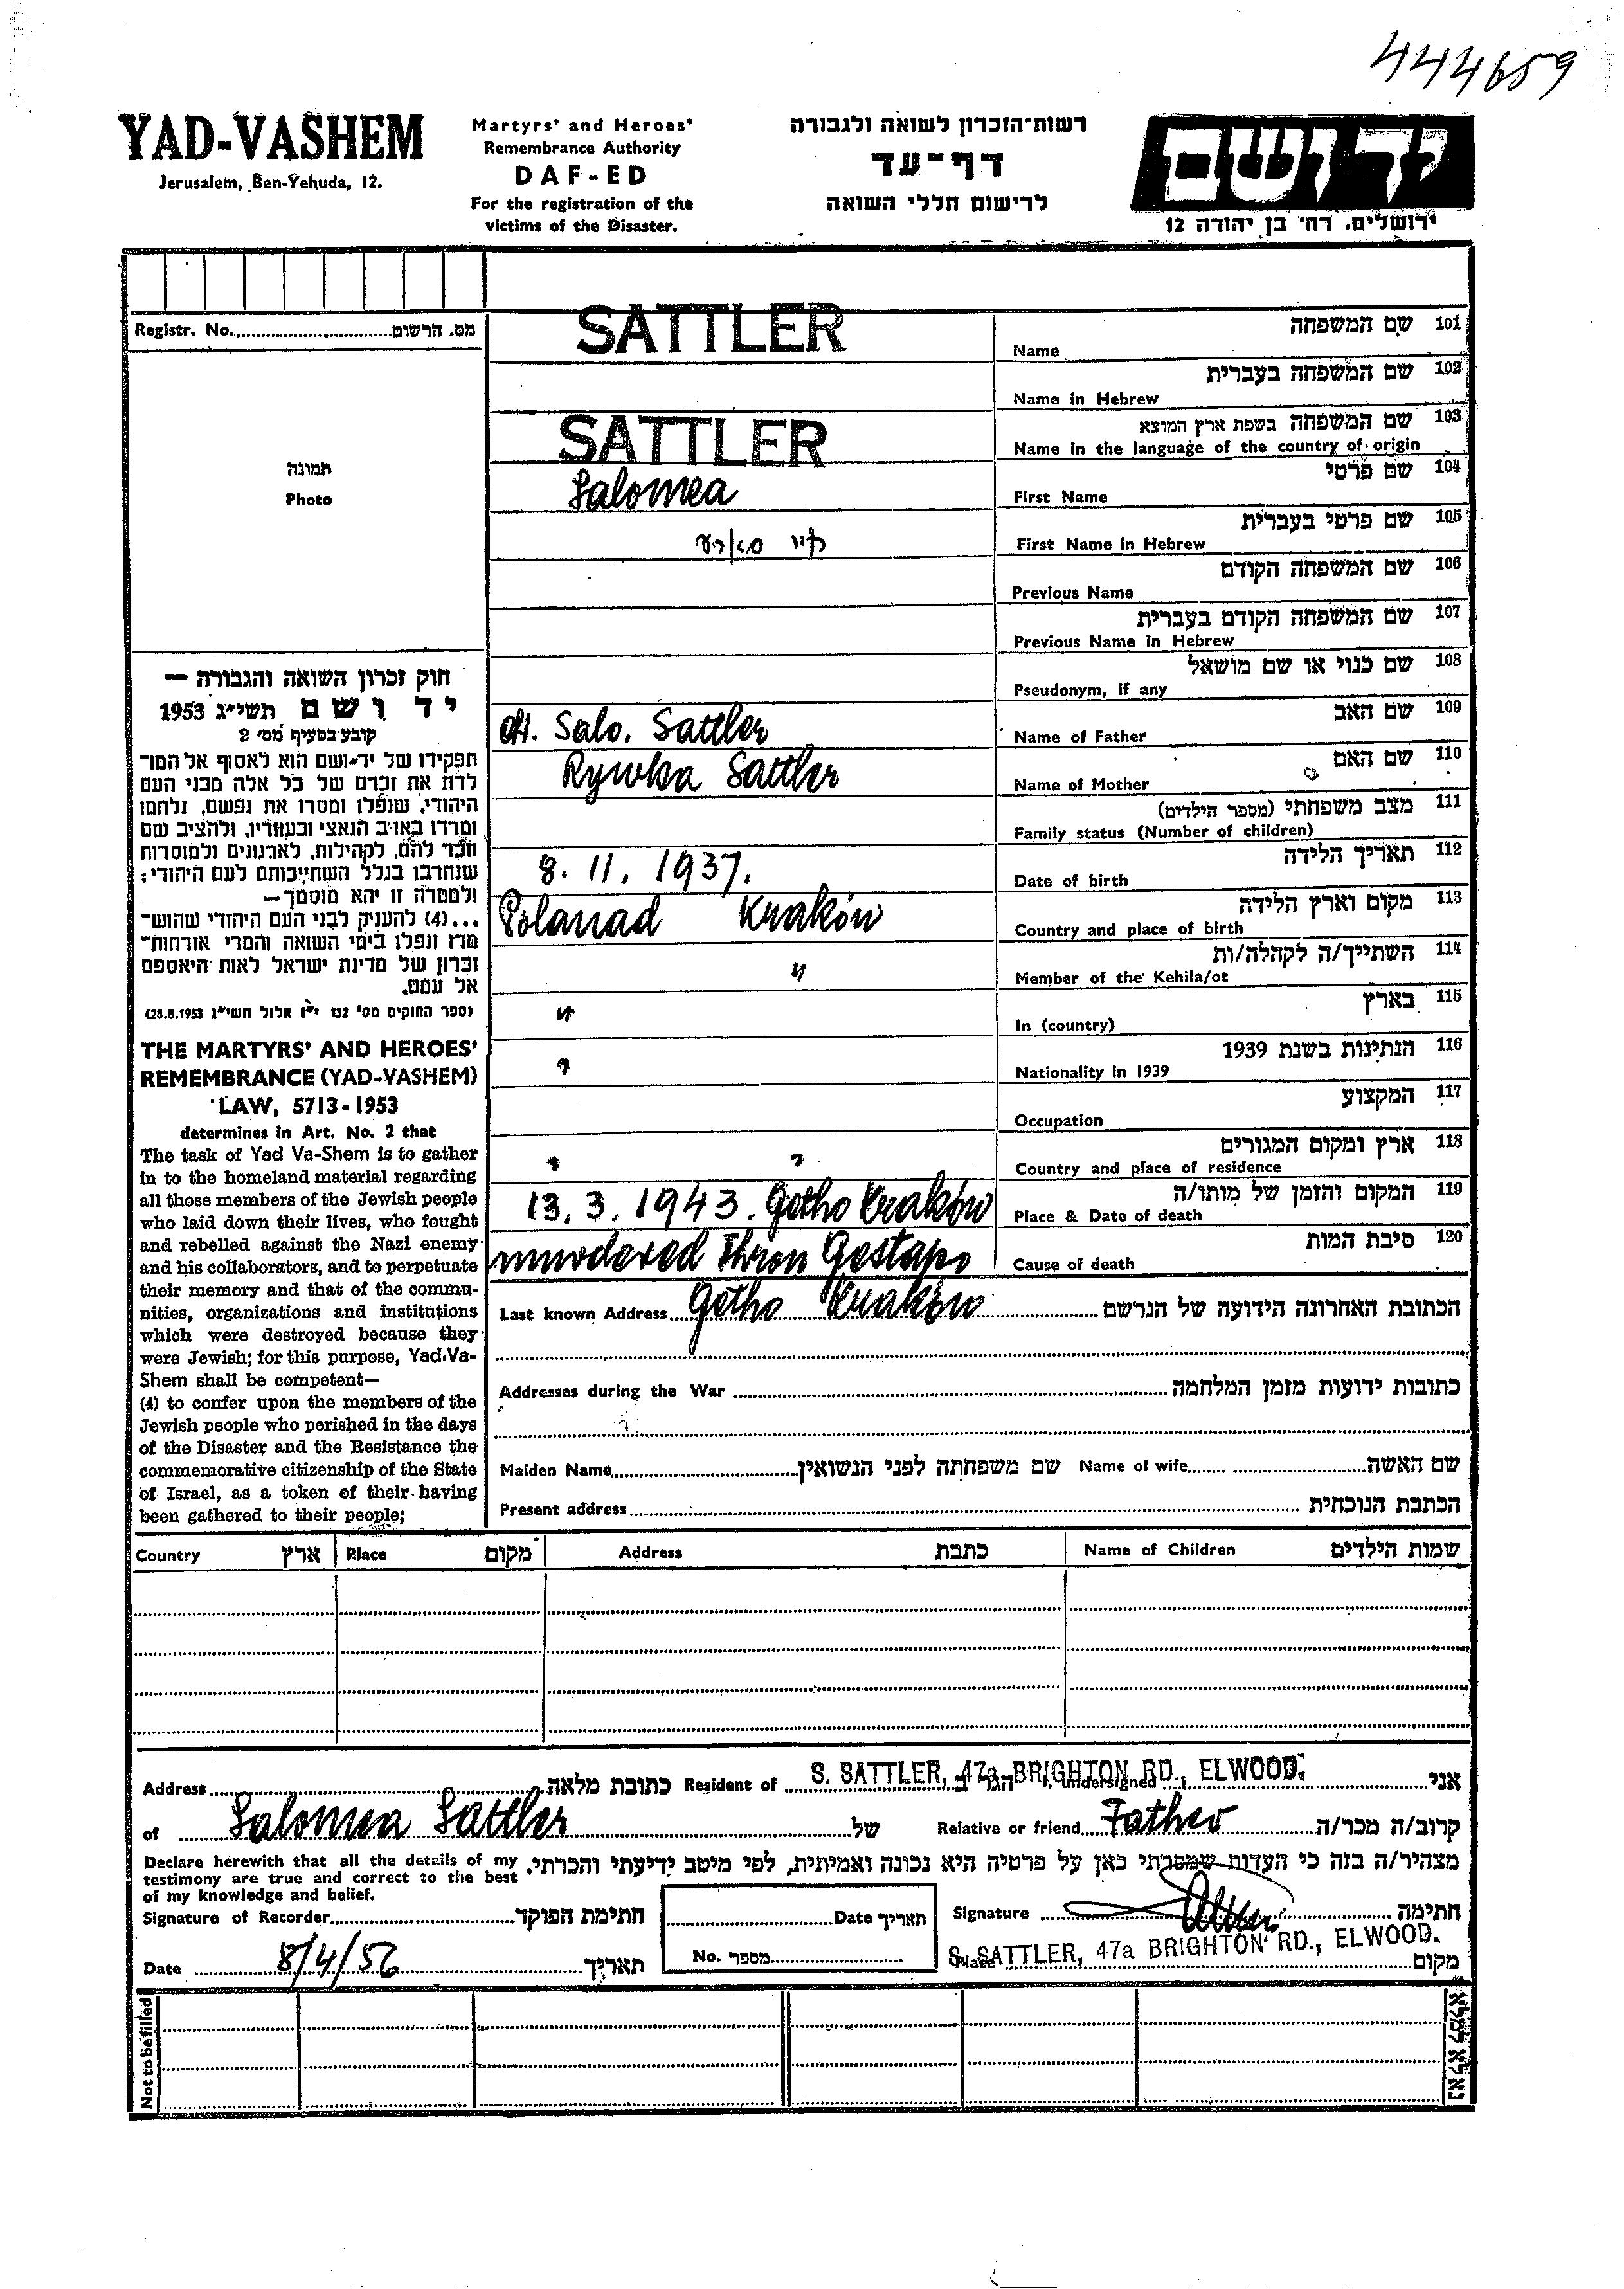 444659
YAD-VASHEM
Jerusalem, Ben-Yehuda, 12.
Martyrs' and Heroes'
Remembrance Authority
DAF-ED
For the registration of the
victims of the Disaster.
רשות-הזכרון לשואה ולגבורה
דף-עד
לרישום חללי השואה
יד ושם
ירושלים. רח' בן יהודה 12
Registr. No. מס. הרשום
תמונה
Photo
חוק זכרון השואה והגבורה —
יד ושם תשי״ג 1953
קובע בסעיף מס׳ 2
תפקידו של יד-ושם הוא לאסוף אל המו־
לדת את זכרם של כל אלה מבני העם
היהודי, שנפלו ומסרו את נפשם, נלחמו
ומרדו באויב הנאצי ובעוזריו, ולהציב שם
וזכר להם, לקהילות, לארגונים ולמוסדות
שנחרבו בגלל השתייכותם לעם היהודי;
ולמטרה זו יהא מוסמך—
...(4) להעניק לבני העם היהודי שהוש־
מדו ונפלו בימי השואה והמרי אזרחות־
זכרון של מדינת ישראל לאות היאספם
אל עמם.
(ספר החוקים מס׳ 132 י״ז אלול תשי״ג 28.8.1953)
THE MARTYRS' AND HEROES'
REMEMBRANCE (YAD-VASHEM)
LAW, 5713-1953
determines in Art. No. 2 that
The task of Yad Va-Shem is to gather
in to the homeland material regarding
all those members of the Jewish people
who laid down their lives, who fought
and rebelled against the Nazi enemy
and his collaborators, and to perpetuate
their memory and that of the commu-
nities, organizations and institutions
which were destroyed because they
were Jewish; for this purpose, Yad-Va-
Shem shall be competent—
(4) to confer upon the members of the
Jewish people who perished in the days
of the Disaster and the Resistance the
commemorative citizenship of the State
of Israel, as a token of their having
been gathered to their people;
SATTLER
101 שם המשפחה
Name
102 שם המשפחה בעברית
Name in Hebrew
SATTLER
103 שם המשפחה בשפת ארץ המוצא
Name in the language of the country of origin
Salomea
104 שם פרטי
First Name
105 שם פרטי בעברית
First Name in Hebrew
106 שם המשפחה הקודם
Previous Name
107 שם המשפחה הקודם בעברית
Previous Name in Hebrew
108 שם כנוי או שם מושאל
Pseudonym, if any
Salo. Sattler
109 שם האב
Name of Father
Rywka Sattler
110 שם האם
Name of Mother
111 מצב משפחתי (מספר הילדים)
Family status (Number of children)
8. 11. 1937.
112 תאריך הלידה
Date of birth
Polanad Kraków
113 מקום וארץ הלידה
Country and place of birth
"
114 השתייך/ה לקהלה/ות
Member of the Kehila/ot
"
115 בארץ
In (country)
"
116 הנתינות בשנת 1939
Nationality in 1939
117 המקצוע
Occupation
" "
118 ארץ ומקום המגורים
Country and place of residence
13. 3. 1943. Getho Kraków
119 המקום והזמן של מותו/ה
Place & Date of death
murdered Thron Gestapo
120 סיבת המות
Cause of death
Last known Address Getho Kraków הכתובת האחרונה הידועה של הנרשם
Addresses during the War כתובות ידועות מזמן המלחמה
Maiden Name שם משפחתה לפני הנשואין Name of wife שם האשה
Present address הכתבת הנוכחית
Country ארץ Place מקום Address כתבת Name of Children שמות הילדים
Address כתובת מלאה Resident of S. SATTLER, 47a BRIGHTON RD., ELWOOD. הגר ב undersigned אני
of Salomea Sattler של Relative or friend Father קרוב/ה מכר/ה
Declare herewith that all the details of my
testimony are true and correct to the best
of my knowledge and belief.
מצהיר/ה בזה כי העדות שמסרתי כאן על פרטיה היא נכונה ואמיתית, לפי מיטב ידיעתי והכרתי.
Signature of Recorder חתימת הפוקד Date תאריך Signature Sattler חתימה
Date 8/4/56 תאריך No. מספר Place S. SATTLER, 47a BRIGHTON RD., ELWOOD. מקום
Not to be filled
נא לא למלא